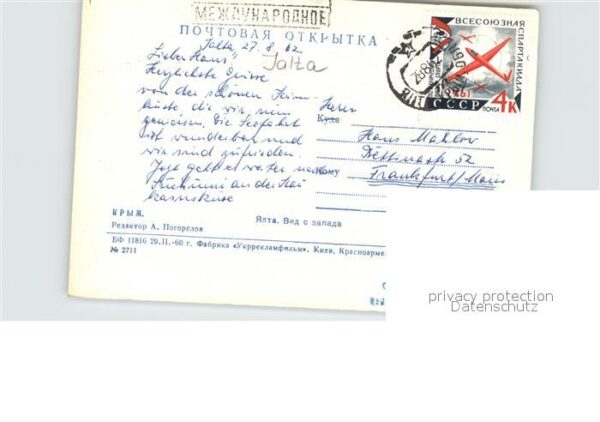 МЕЖДУНАРОДНОЕ
ПОЧТОВАЯ ОТКРЫТКА
ВСЕСОЮЗНАЯ
СПАРТАКИАДА
1961
СССР
ПОЧТА
4К
Jalta 27.8.62
Jalta
Lieber Hans,
Herzlichste Grüsse
von der schönen Krim-
küste, die wir
Die Seefahrt
ist wunderbar und
wir sind zufrieden.
Jetzt geht es weiter nach
Suchumi an der Kau
kasusküste
Herrn
Куда
Hans Mahlow
52
Кому
Frankfurt/Main
КРЫМ.
Ялта. Вид с запада
Редактор А. Погорелов
БФ 11816 29.II.-60 г. Фабрика «Укррекламфильм», Киев, Красноарме
№ 2711
privacy protection
Datenschutz